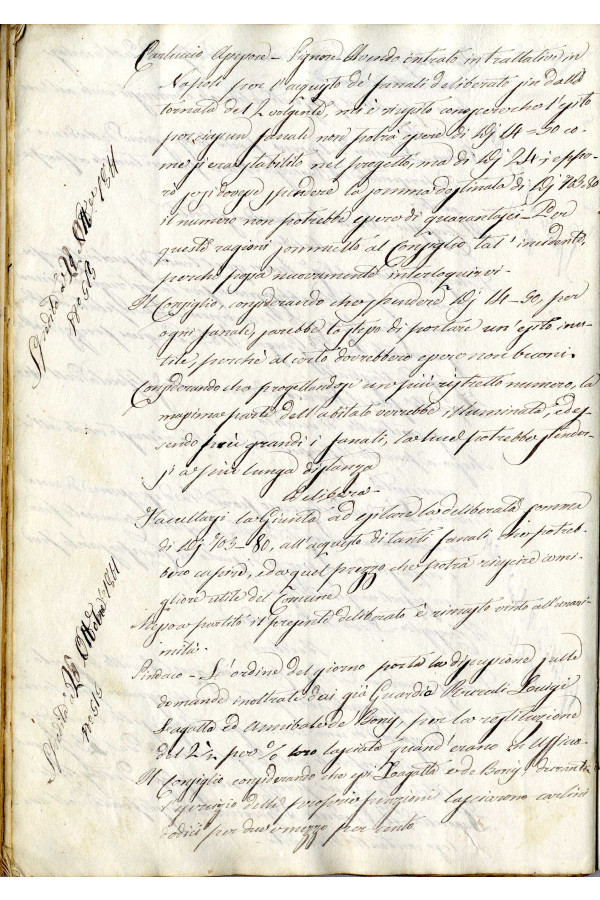 Carluccio Assessore - Signori Avendo entrato in trattative in
Napoli per l'acquisto de' fanali deliberato fin dalla
tornata del 2 volgente, mi è riuscito conoscere che l'esito
per ciascun fanale non potrà essere di Dj 14=90 co-
me si era stabilito nel progetto, ma di Dj 24; eppe-
rò se si dovesse spendere la somma destinata di Dj 703.80
il numero non potrebbe essere di quarantasei - Per
queste ragioni sommetto al Consiglio tal' incidente,
perché possa nuovamente interloquirvi -
Il Consiglio, considerando che spendere Dj 14-90, per
ogni fanale, sarebbe lo stesso di portare un' esito inu-
tile, perchè al certo dovrebbero essere non buoni.
Considerando che progettandosi un più ristretto numero, la
massima parte dell'abitato verrebbe illuminata, ed es-
sendo più grandi i fanali, la luce potrebbe stender-
si a più lunga distanza
Delibera -
Facultarsi la Giunta ad esitare la deliberata somma
di Dj 703-80, all'acquisto di tanti fanali che potreb-
bero capire, ed a quel prezzo che potrà riuscire a mi-
gliore utile del Comune
Messo a partito il presente deliberato è rimasto vinto all'unani-
mità -
Sindaco - L'ordine del giorno porta la discussione sulle
domande inoltrate dai già Guardia Rurali Luigi
Sagatta ed Annibale de Bony, per la restituzione
del 2½ per % loro lasciato quand' erano in Ufficio -
Il Consiglio considerando che essi Sagatta e de Bony durante
l'esercizio delle proprie funzioni lasciarono carlini
dodici per due e mezzo per cento
Spedita a 28
No 515
Spedita a 26 Ottobre
No 516